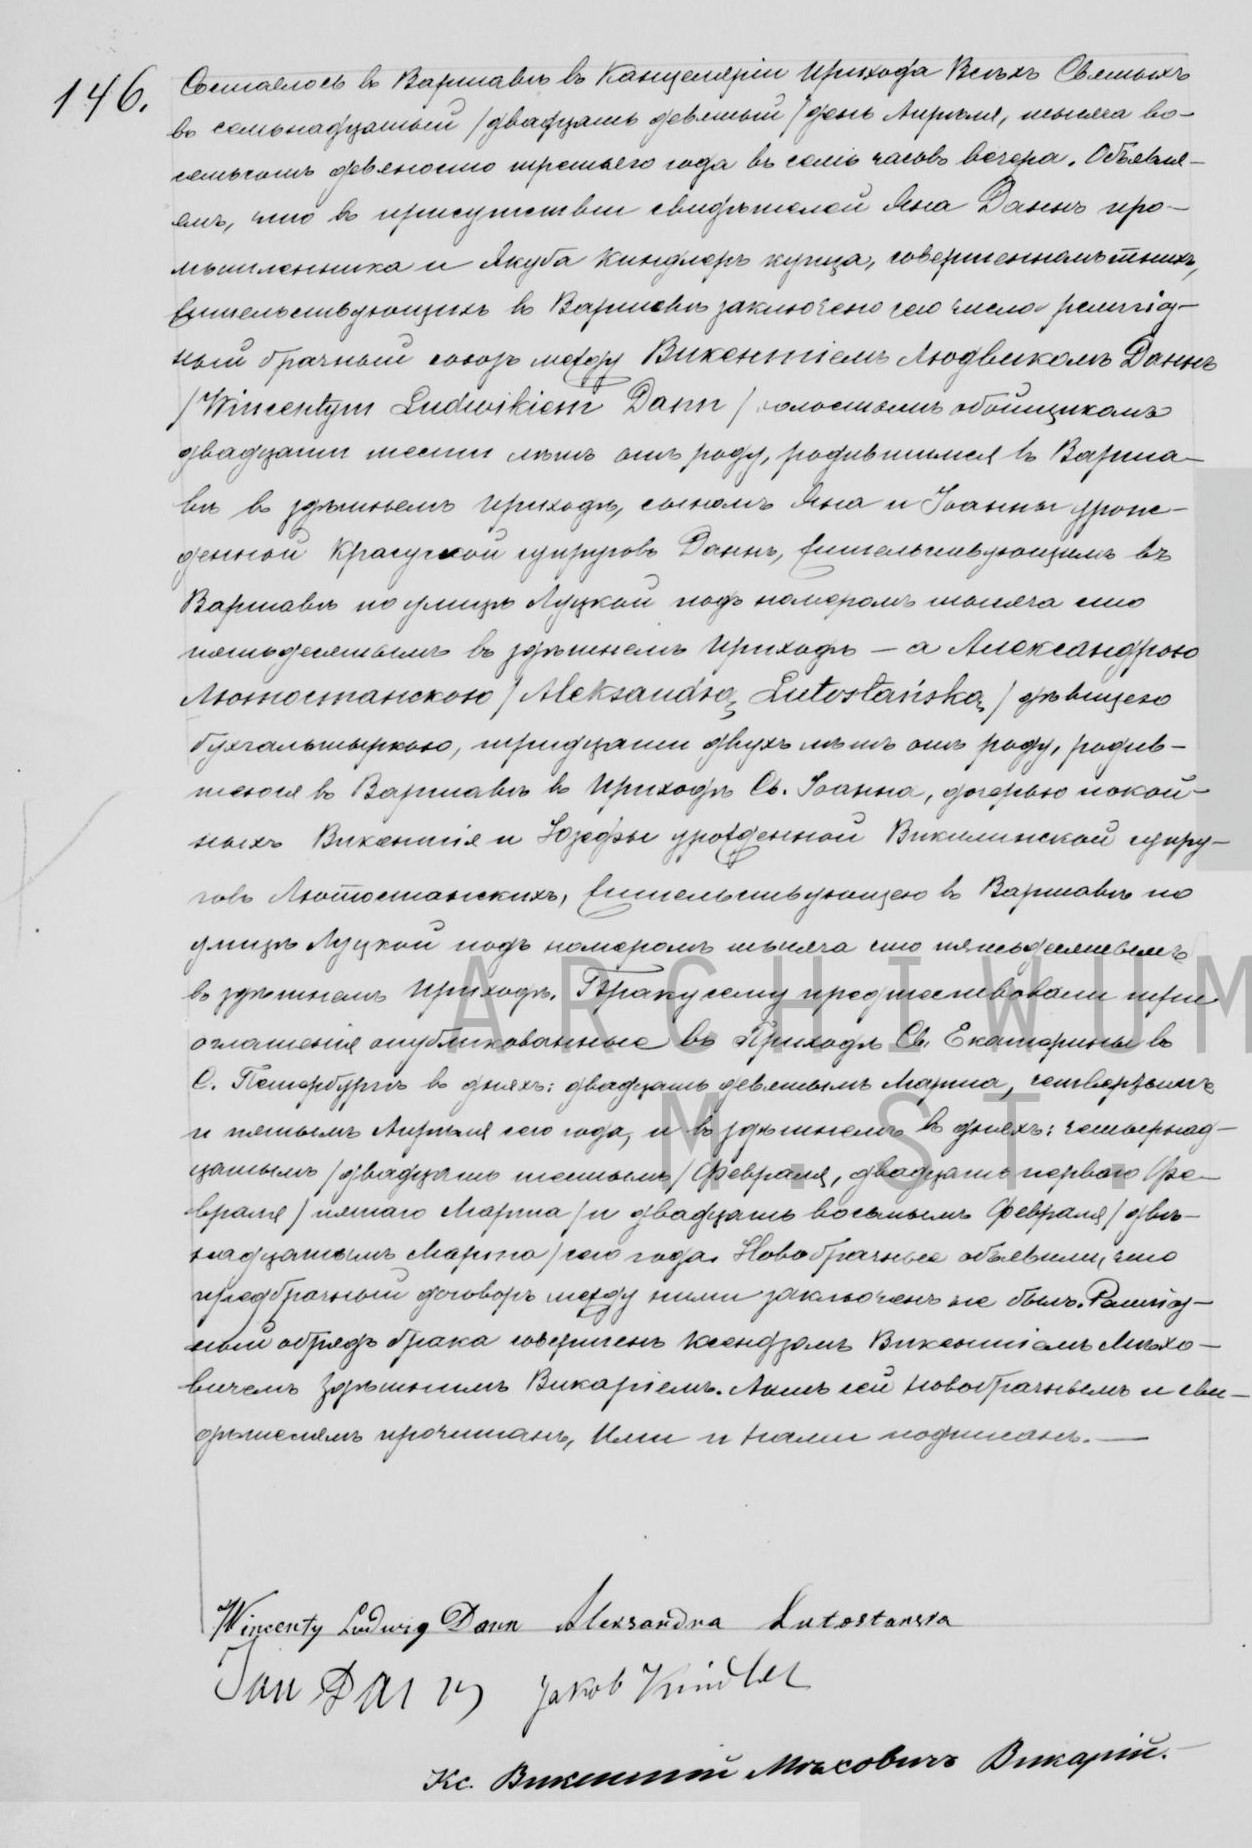 146.
Состоялось въ Варшавѣ въ Канцеляріи Прихода Всѣхъ Святыхъ
въ семьнадцатый /двадцать девятый/ день Апрѣля, тысяча во-
семьсотъ девяносто третьяго года въ семь часовъ вечера. Объявля-
емъ, что въ присутствіи свидѣтелей Яна Даннъ про-
мышленника и Якуба Киндлеръ купца, совершеннолѣтнихъ,
жительствующихъ въ Варшавѣ заключенъ сего числа религіоз-
ный брачный союзъ между Викентіемъ Людвикомъ Даннъ
/Wincentym Ludwikiem Dann/ холостымъ обойщикомъ
двадцати шести лѣтъ отъ роду, родившимся въ Варша-
вѣ въ здѣшнемъ Приходѣ, сыномъ Яна и Іоанны урож-
денной Красуской супруговъ Даннъ, жительствующимъ въ
Варшавѣ по улицѣ Луцкой подъ номеромъ тысяча сто
пятьдесятымъ въ здѣшнемъ Приходѣ — а Александрою
Лютостанскою /Aleksandrą Lutostańską/ дѣвицею
бухгальтыркою, тридцати двухъ лѣтъ отъ роду, родив-
шеюся въ Варшавѣ въ Приходѣ Св. Іоанна, дочерью покой-
ныхъ Викентія и Юзефы урожденной супру-
говъ Лютостанскихъ, жительствующею въ Варшавѣ по
улицѣ Луцкой подъ номеромъ тысяча сто пятьдесятымъ
въ здѣшнемъ Приходѣ. Браку сему предшествовали три
оглашенія опубликованные въ Приходѣ Св. Екатерины въ
С. Петербургѣ въ дняхъ: двадцать девятымъ Марта,
и пятымъ Апрѣля сего года, и въ здѣшнемъ въ дняхъ: четырнад-
цатымъ /двадцать шестымъ/ Февраля, двадцать перваго Фе-
враля /пятаго Марта/ и двадцать восьмымъ Февраля /двѣ-
надцатымъ Марта/ сего года. Новобрачные объявили, что
предбрачный договоръ между ними заключенъ не былъ. Религіоз-
ный обрядъ брака совершенъ Ксендзомъ Викентіемъ Мѣхо-
вичемъ здѣшнимъ Викаріемъ. Актъ сей Новобрачнымъ и сви-
дѣтелямъ прочитанъ, Ими и Нами подписанъ.—
Wincenty Ludwig Dann Alexsandra Lutostanska
Jan Dann Jakob Kindler
Кс. Викентій Мѣховичъ Викарій.
ARCHIWUM
M. ST.